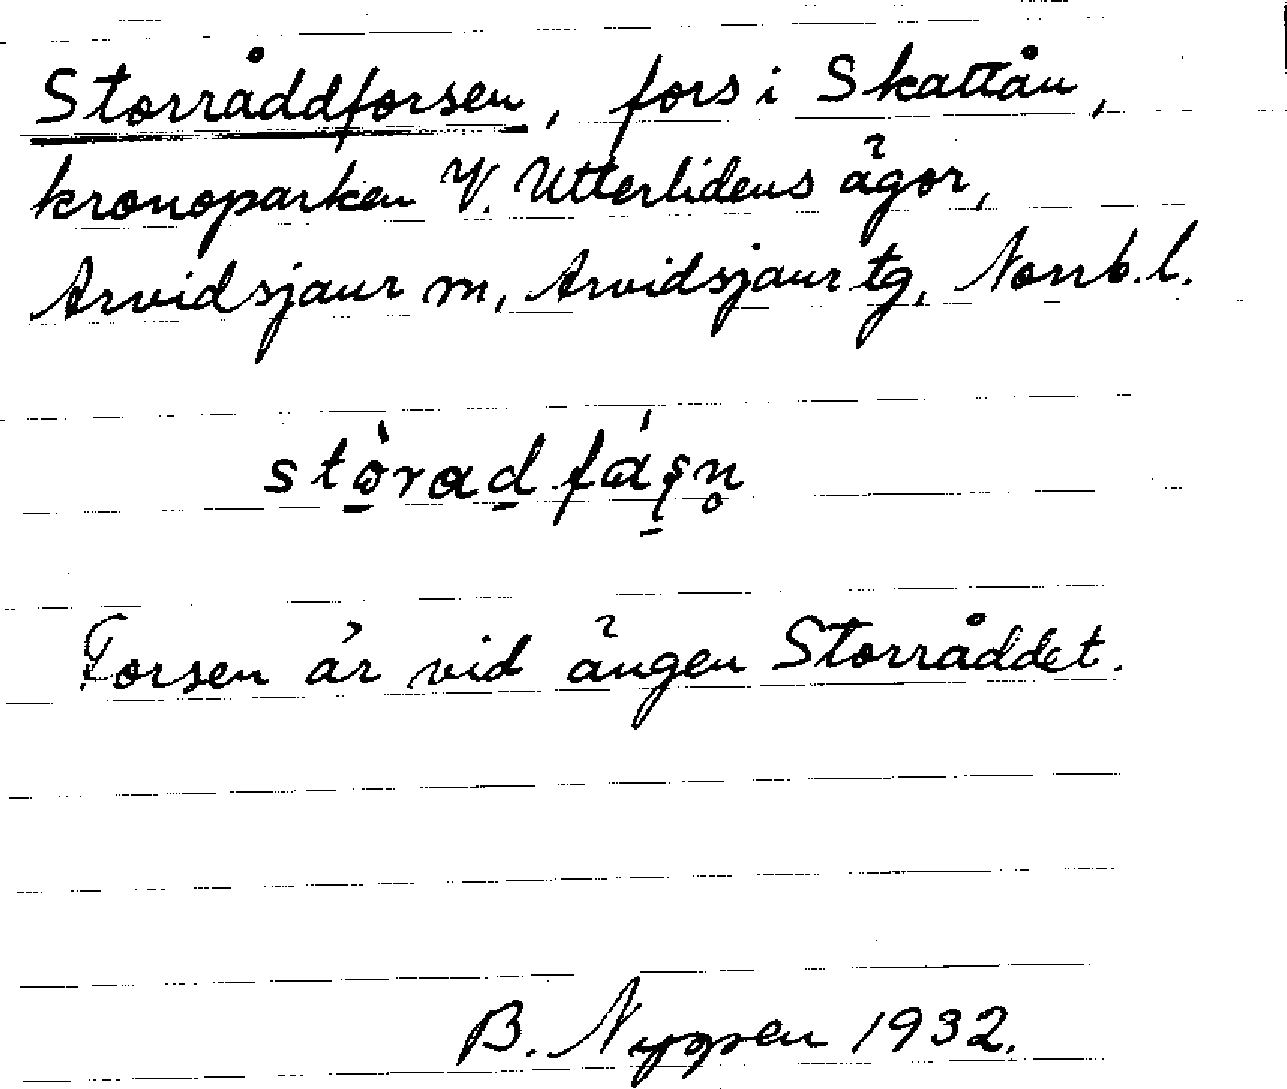 Storråddforsen, fors i Skattån,
kronoparken V. Utterlidens ägor,
Arvidsjaur sn, Arvidsjaur tg, Norrb. l.
Forsen är vid ängen Storråddet.
B. Nygren 1932.